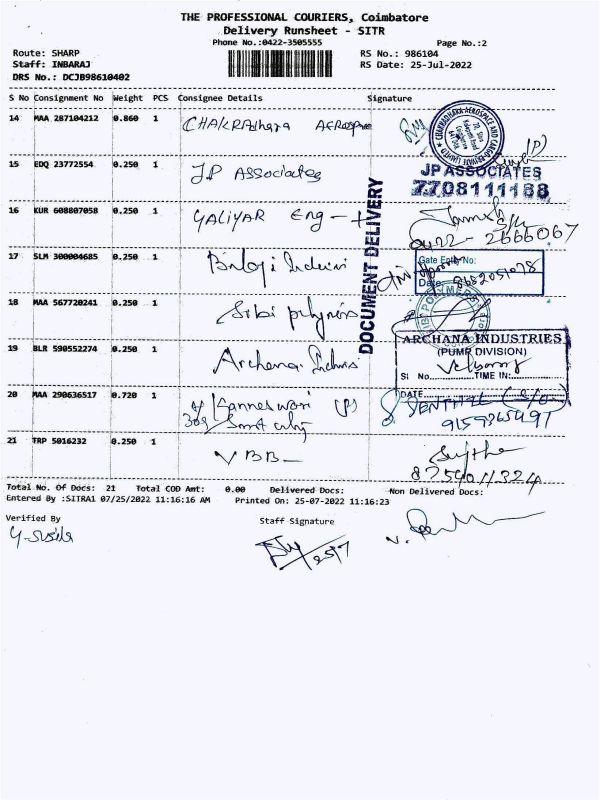 THE PROFESSIONAL COURIERS, Coimbatore
Delivery Runsheet - SITR
Phone No.:0422-3505555 Page No.:2
Route: SHARP RS No.: 986104
Staff: INBARAJ RS Date: 25-Jul-2022
DRS No.: DCJB98610402
S No Consignment No Weight PCS Consignee Details Signature
14 MAA 287104212 0.860 1 CHAKRAdhara AEROSpace
15 EDQ 23772554 0.250 1 J.P ASSociates
JP ASSOCIATES
7708111188
16 KUR 608807058 0.250 1 YALIYAR Eng
0422- 2666067
17 SLM 300004685 0.250 1
Gate Entry No:
Date: 8682051078
18 MAA 567720241 0.250 1 Sibi
DOCUMENT DELIVERY
19 BLR 590552274 0.250 1 Archana
ARCHANA INDUSTRIES
(PUMP DIVISION)
Sl No. TIME IN:
DATE
20 MAA 290636517 0.720 1 Kanneswari
309 Smart city
SENTHIL
9159365491
21 TRP 5016232 0.250 1 VBB
8754011324
Total No. Of Docs: 21 Total COD Amt: 0.00 Delivered Docs: Non Delivered Docs:
Entered By :SITRA1 07/25/2022 11:16:16 AM Printed On: 25-07-2022 11:16:23
Verified By Staff Signature
Y-Susila
25/7